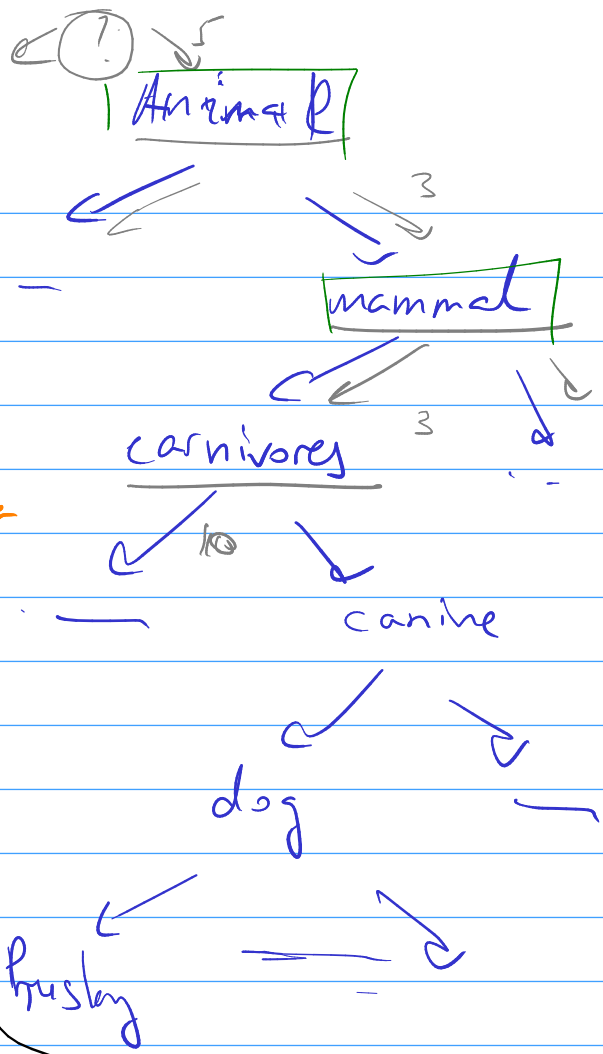 ?
5
Animal
3
mammal
3
carnivores
10
canine
dog
husky